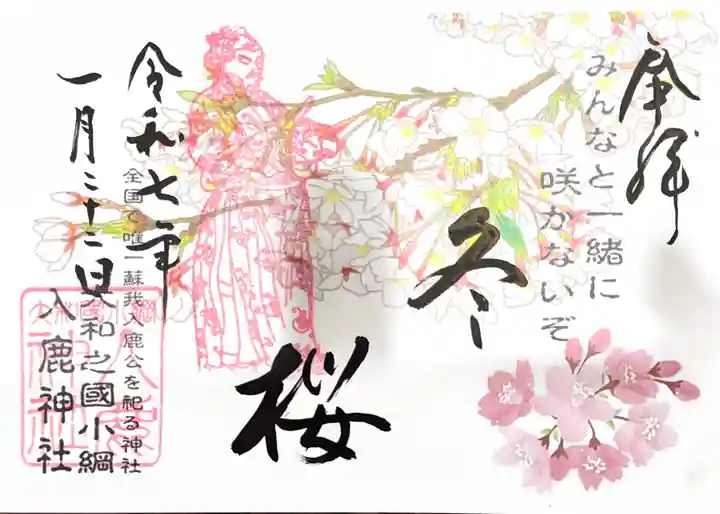 奉拝
みんなと一緒に
咲かないぞ
冬
桜
令和七年
一月二十二日
全国で唯一蘇我入鹿公を祀る神社
大和之國小綱
入鹿神社